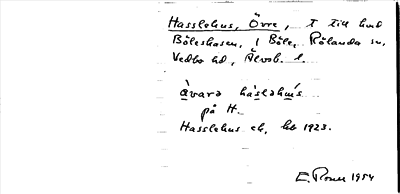 Hasslehus, Övre, t till hmd
Böleshasen, 1 Böle, Rölanda sn,
Vedbo hd, Älvsb. l.
àvarə há̀sləhu̇s
på H.
Hasslehus ek, kbl 1923.
E. Roner 1954